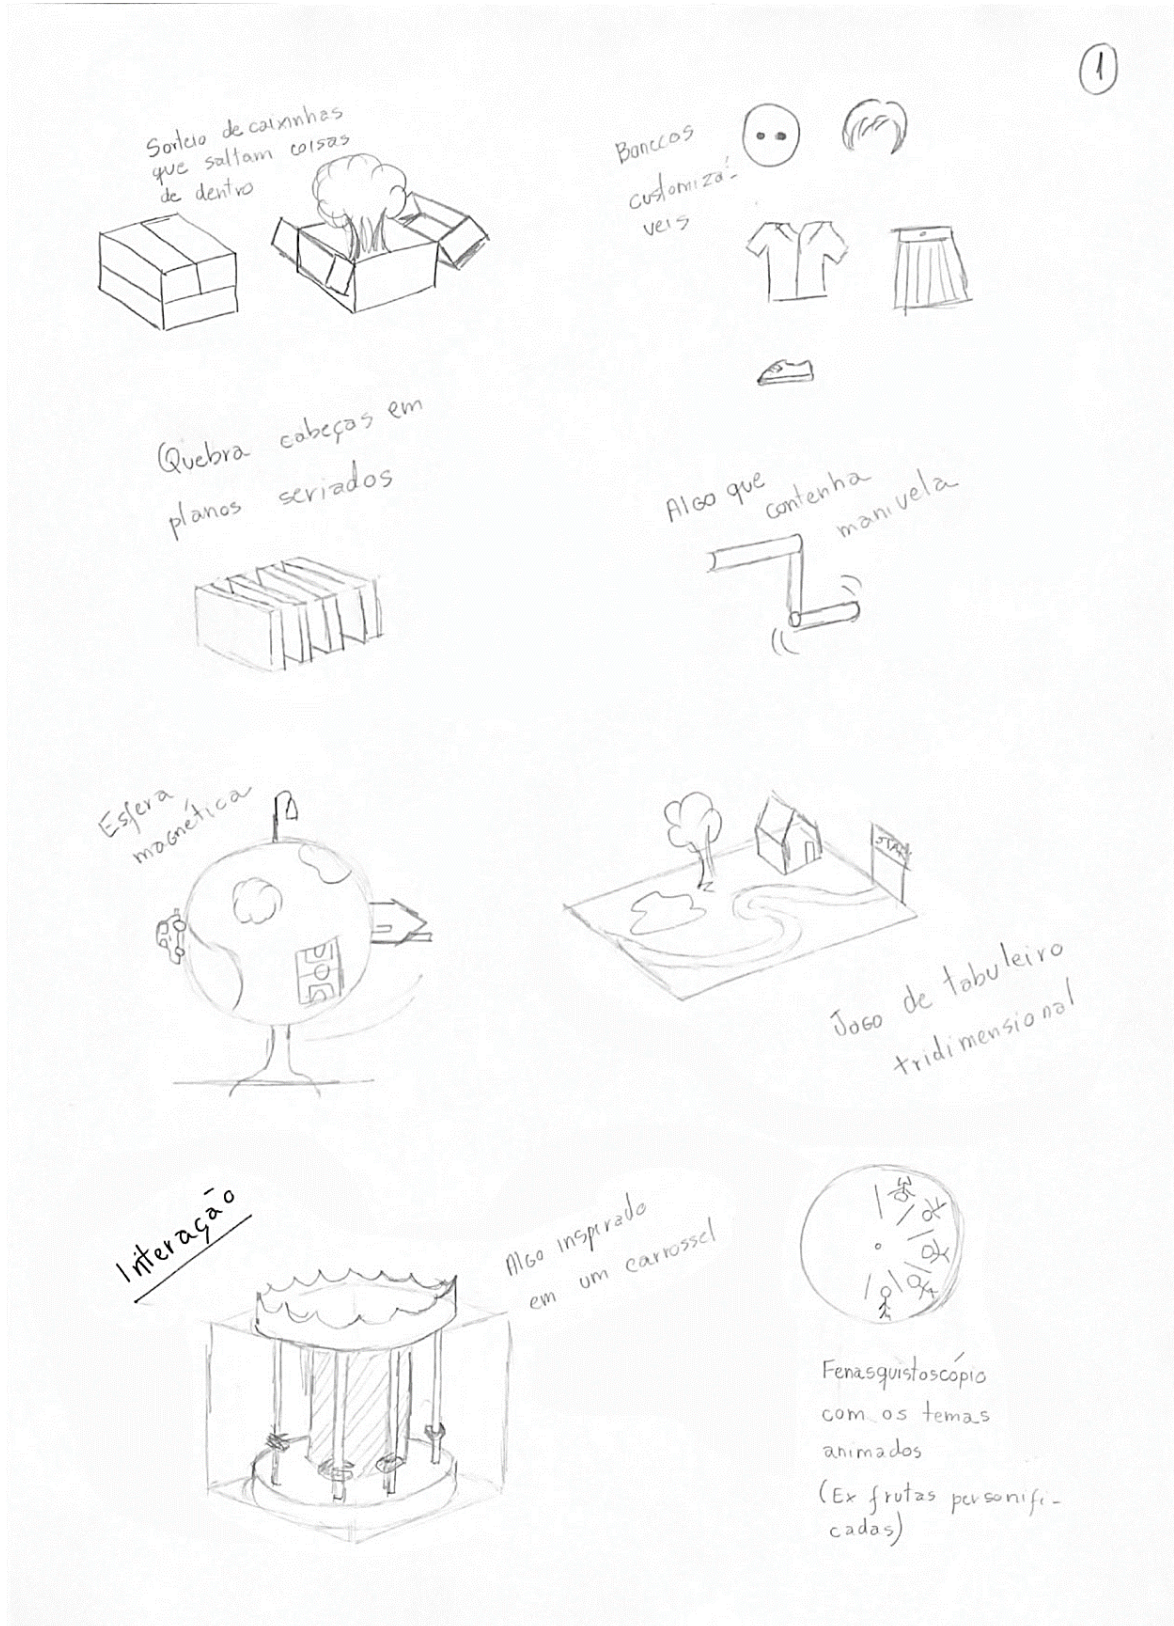 1
Sorteio de caixinhas
que saltam coisas
de dentro
Bonecos
customizá-
veis
Quebra cabeças em
planos seriados
Algo que
contenha
manivela
Esfera
magnética
START
Jogo de tabuleiro
tridimensional
Interação
Algo inspirado
em um carrossel
Fenasquistoscópio
com os temas
animados
(Ex frutas personifi-
cadas)